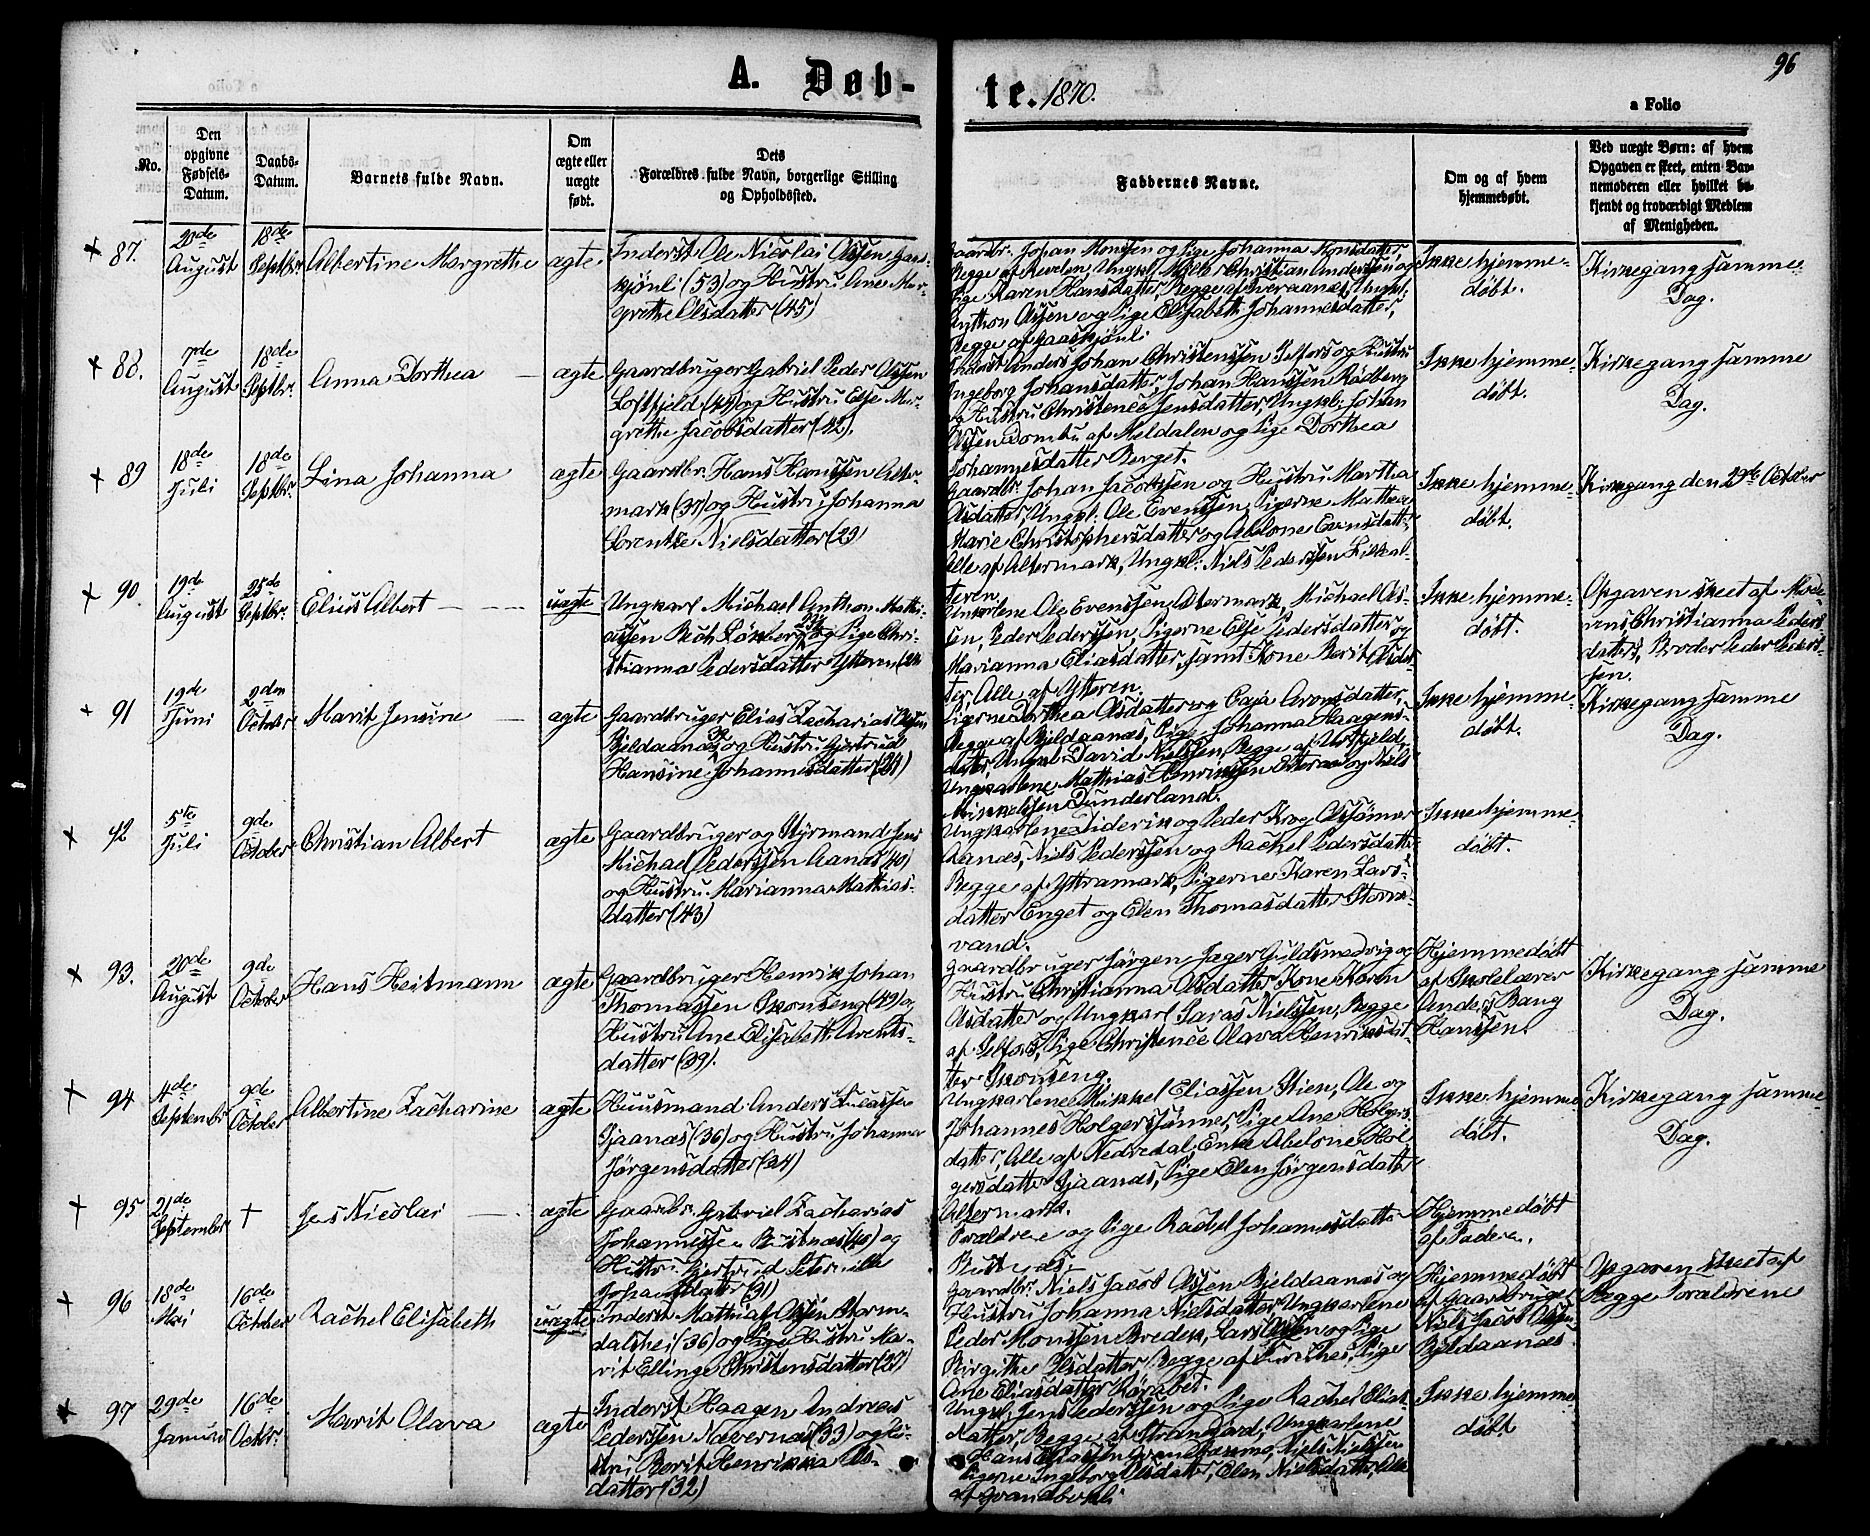 96
A. Døb-
te. 1870.
a Folio
No.
Den
opgivne
Fødsels-
Datum.
Daabs-
Datum.
Barnets fulde Navn.
Om
ægte eller
uægte
født.
Dets
Forældres fulde Navn, borgerlige Stilling
og Opholdssted.
Faddernes Navne.
Om og af hvem
hjemmedøbt.
Ved uægte Børn: af hvem
Opgaven er skeet, enten Bar-
nemoderen eller hvilket be-
kjendt og troværdigt Medlem
af Menigheden.
+ 87.
20de
August
18de
Septbr
Albertine Margrethe
ægte
Inderst Ole Nicolai Olssen Gaas-
kjönli (53) og Hustru Ane Mar-
grethe Olsdatter (45)
Gaardbr. Johan Monssen og Pige Johanna Monsdatter,
Begge af Revelen, Ungkl. Niels Christian Anderssen og
Pige Karen Hansdatter, Begge af Sveraanæs, Ungkl.
Anthon Olssen og Pige Elisabeth Johannesdatter,
Begge af Gaaskjönli
Ikke hjemme-
døbt.
Kirkegang samme
Dag.
+ 88.
7de
August
18de
Septbr.
Anna Dorthea
ægte
Gaardbruger Gabriel Peder Olssen
Loftfjeld (44) og Hustru Else Mar-
grethe Jacobsdatter (42).
Inderst Anders Johan Christenssen Selfors og Hustru
Ingeborg Johansdatter, Johan Hanssen Rødberg
og Hustru Christence Jensdatter, Ungkl. Johan
Olssen Dombu af Meldalen og Pige Dorthea
Johannesdatter Berget.
Ikke hjemme-
døbt.
Kirkegang samme
Dag.
+ 89
18de
Juli
18de
Septbr.
Lina Johanna
ægte
Gaardbr. Hans Hanssen Alter-
mark (37) og Hustru Johanna
Lorentze Nielsdatter (29)
Gaardbr. Johan Jacobssen og Hustru Martha
Olsdatter, Ungkl. Ole Evenssen, Pigerne Mathea
Marie Christophersdatter og Abelone Evensdatter,
Alle af Altermark, Ungkl. Niels Pederssen Lilleal-
teren.
Ikke hjemme-
døbt.
Kirkegang den 29de October
+ 90.
19de
August
25de
Septbr.
Elius Albert
uægte
Ungkarl Michael Anthon Mathi-
assen Bech Lønberg og Pige Chri-
stianna Pedersdatter Ytteren (24
Ungkarlene Ole Evenssen Altermark, Michael Ols-
sen, Peder Pederssen, Pigerne Else Pedersdatter og
Marianna Eliasdatter samt Kone Berit Olsdat-
ter, Alle af Ytteren.
Ikke hjemme-
døbt.
Opgaven skeet af Mode-
rens Christianna Peders-
datters, Broder Peder Peders-
sen.
+ 91
19de
Juni
2den
October
Marit Jensine
ægte
Gaardbruger Elias Zacharias Olssen
Bjeldaanæs og Hustru Gjertrud
Hansine Johannesdatter (24)
Pigerne Dorthea Olsdatter og Caja Aronsdatter,
Begge af Bjeldaanæs, Pige Johanna Haagens-
datter, Ungkl. David Nielssen, Begge af Urtfjeld,
Ungkarlene Mathias Henrikssen Etteraa og Niels
Mikkelssen Dunderland.
Ikke hjemme-
døbt.
Kirkegang samme
Dag.
+ 42
5te
Juli
9de
October
Christian Albert
ægte
Gaardbruger og Styrmand Jens
Michael Pederssen Aanæs (40)
og Hustru Marianna Mathias-
datter (43)
Ungkarlene Diderik og Peder Krog Olssönner
Aanæs, Niels Pederssen og Rachel Pedersdatter
Begge af Yttramark, Pigerne Karen Lars-
datter Enget og Elen Thomasdatter Stor-
vand.
Ikke hjemme-
døbt.
+ 93.
20de
August
9de
October
Hans Heitmann
ægte
Gaardbruger Henrik Johan
Thomassen Skonseng (49) og
Hustru Ane Elisabeth Arents-
datter (39).
Gaardbruger Jørgen Jæger Guldsmedvig og
Hustru Christianna Olsdatter Kone Karen
Olsdatter og Ungkarl Saras Nielssen, Begge
af Selfors, Pige Christence Olava Henriksdat-
ter Skonseng.
Hjemmedøbt
af Skolelærer
Anders Bang
Hanssen
Kirkegang samme
Dag.
+ 94
4de
September
9de
October
Albertine Zacharine
ægte
Huusmand Anders Lucassen
Sjaanæs (36) og Hustru Johanna
Jørgensdatter (34)
Ungkarlene Mikkel Eliassen Stien, Ole og
Johannes Holgerssønner, Pige Ane Holgers-
datter, Alle af Nedredal, Enke Abelone Hol-
gersdatter Sjaanæs, Pige Elen Jørgensdatter
Altermark.
Ikke hjemme
døbt.
Kirkegang samme
Dag.
+ 95
21de
September
+
Jens Nicolai
ægte
Gaardbr. Gabriel Zacharias
Johannessen Bustnæs (40) og
Hustru Gjertrud Peternille
Johansdatter (31)
Forældrene og Pige Rachel Johannesdatter
Bustnæs.
Hjemmedøbt
af Faderen.
+ 96
18de
Mai
16de
October
Rachel Elisabeth
uægte
Inderst Mathias Olssen Storm-
dalshei (36) og Hustru Ma-
rit Ellinge Christensdatter (27)
Gaardbr. Niels Jacob Olssen Bjeldaanæs og
Hustru Johanna Nielsdatter, Ungkarlene
Peder Monssen Bredek, Lars Olssen og Pige
Birgithe Olsdatter, Begge af Pige
Ane Eliasdatter Rørabet.
Hjemmedøbt
af Gaardbruger
Niels Jacob Olssen
Bjeldaanæs
Opgaven skeet af
Begge Forældrene
+ 97
29de
Januar
16de
Octbr.
Marit Olava
ægte
Inderst Haagen Andreas
Pederssen Nævernæs (33) og Hu-
stru Berit Henrikka Ols-
datter (32)
Ungkl. Jens Pederssen og Pige Rachel Elias-
datter, Begge af Strandjord, Ungkarlene
Hans Eliassen Nielssen
Pigerne Ingeborg Olsdatter, Elen Nielsdatter, Alle
af
Ikke hjemme
døbt.